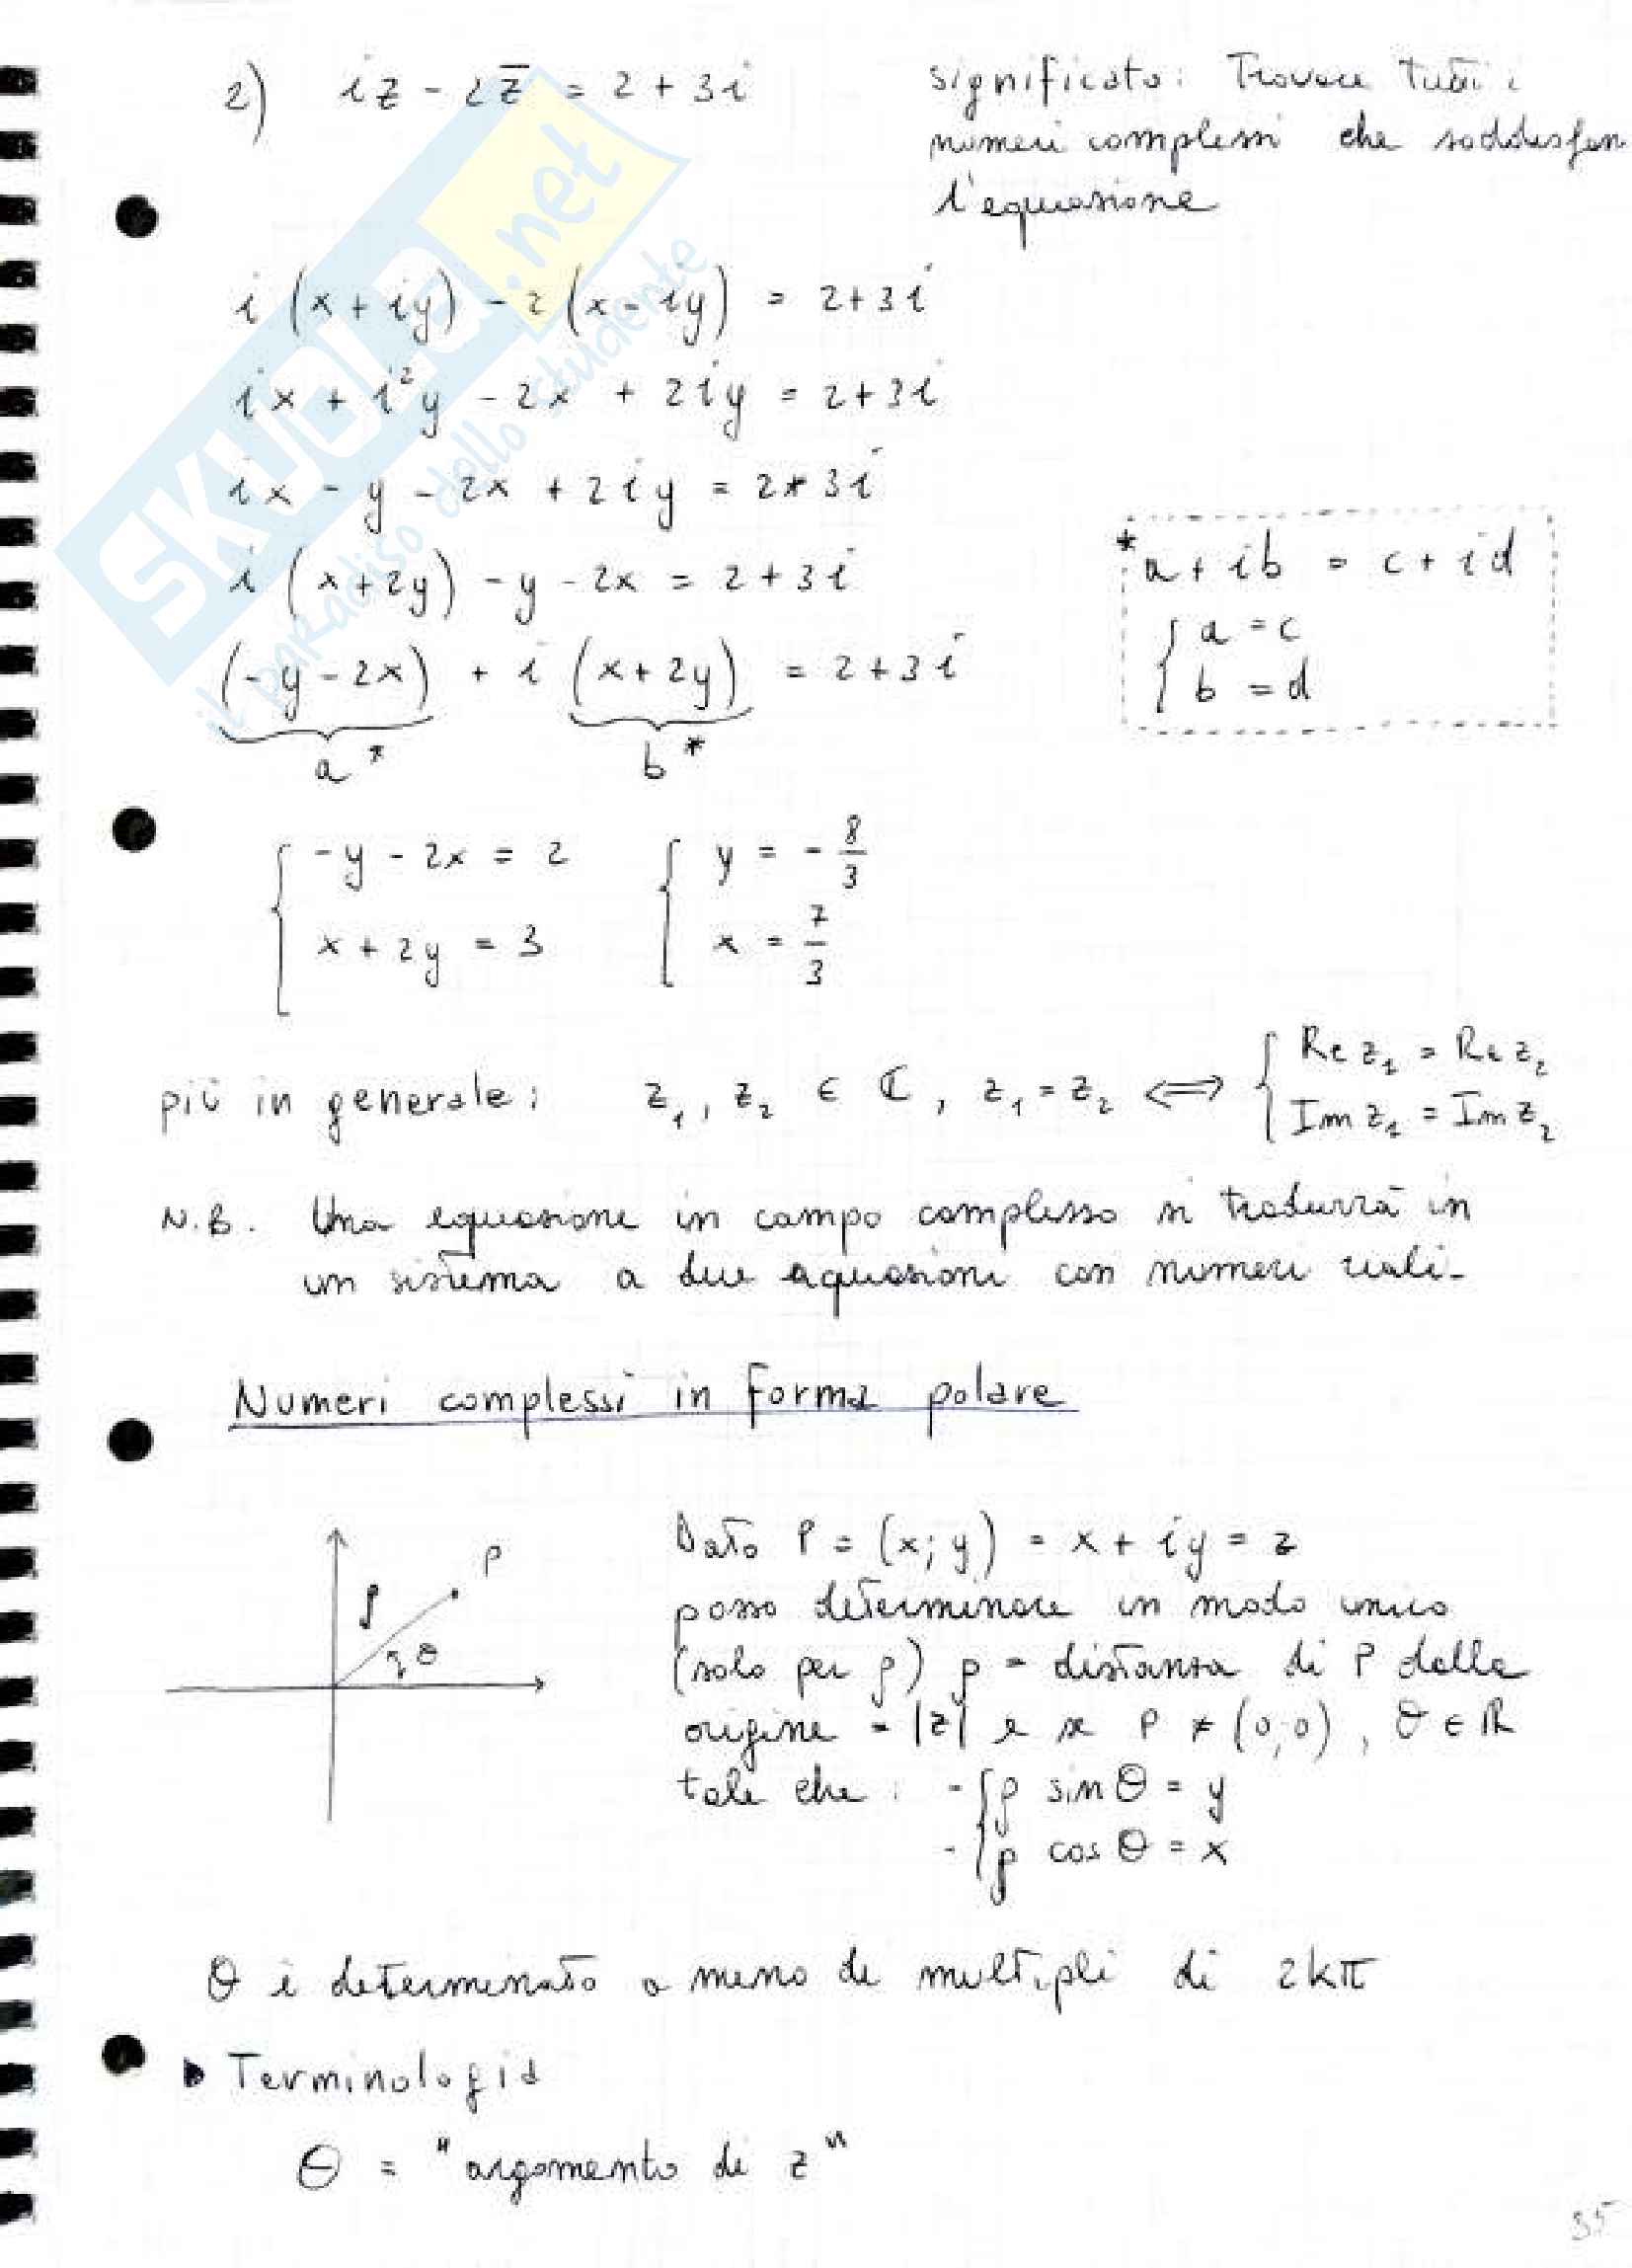 2) iz - 2z̅ = 2 + 3i
significato: Trovare tutti i
numeri complessi che soddisfan
l'equazione
i (x + iy) - 2 (x - iy) = 2+3i
ix + i²y - 2x + 2iy = 2+3i
ix - y - 2x + 2iy = 2+3i
i (x+2y) - y - 2x = 2+3i
(-y-2x) + i (x+2y) = 2+3i
a* b*
*a + ib = c + id
{ a = c
b = d
{ -y - 2x = 2
x + 2y = 3
{ y = - 8/3
x = 7/3
più in generale: z₁, z₂ ∈ ℂ, z₁ = z₂ ⟺ { Re z₁ = Re z₂
Im z₁ = Im z₂
N.B. Una equazione in campo complesso si tradurrà in
un sistema a due equazioni con numeri reali.
Numeri complessi in forma polare
P
ρ
θ
Dato P = (x; y) = x + iy = z
posso determinare in modo unico
(solo per ρ) ρ = distanza di P dalla
origine = |z| e se P ≠ (0,0), θ ∈ ℝ
tale che: - { ρ sin θ = y
- ρ cos θ = x
θ è determinato a meno di multipli di 2kπ
Terminologia
θ = "argomento di z"
35
SKUOLA.net
il paradiso dello studente